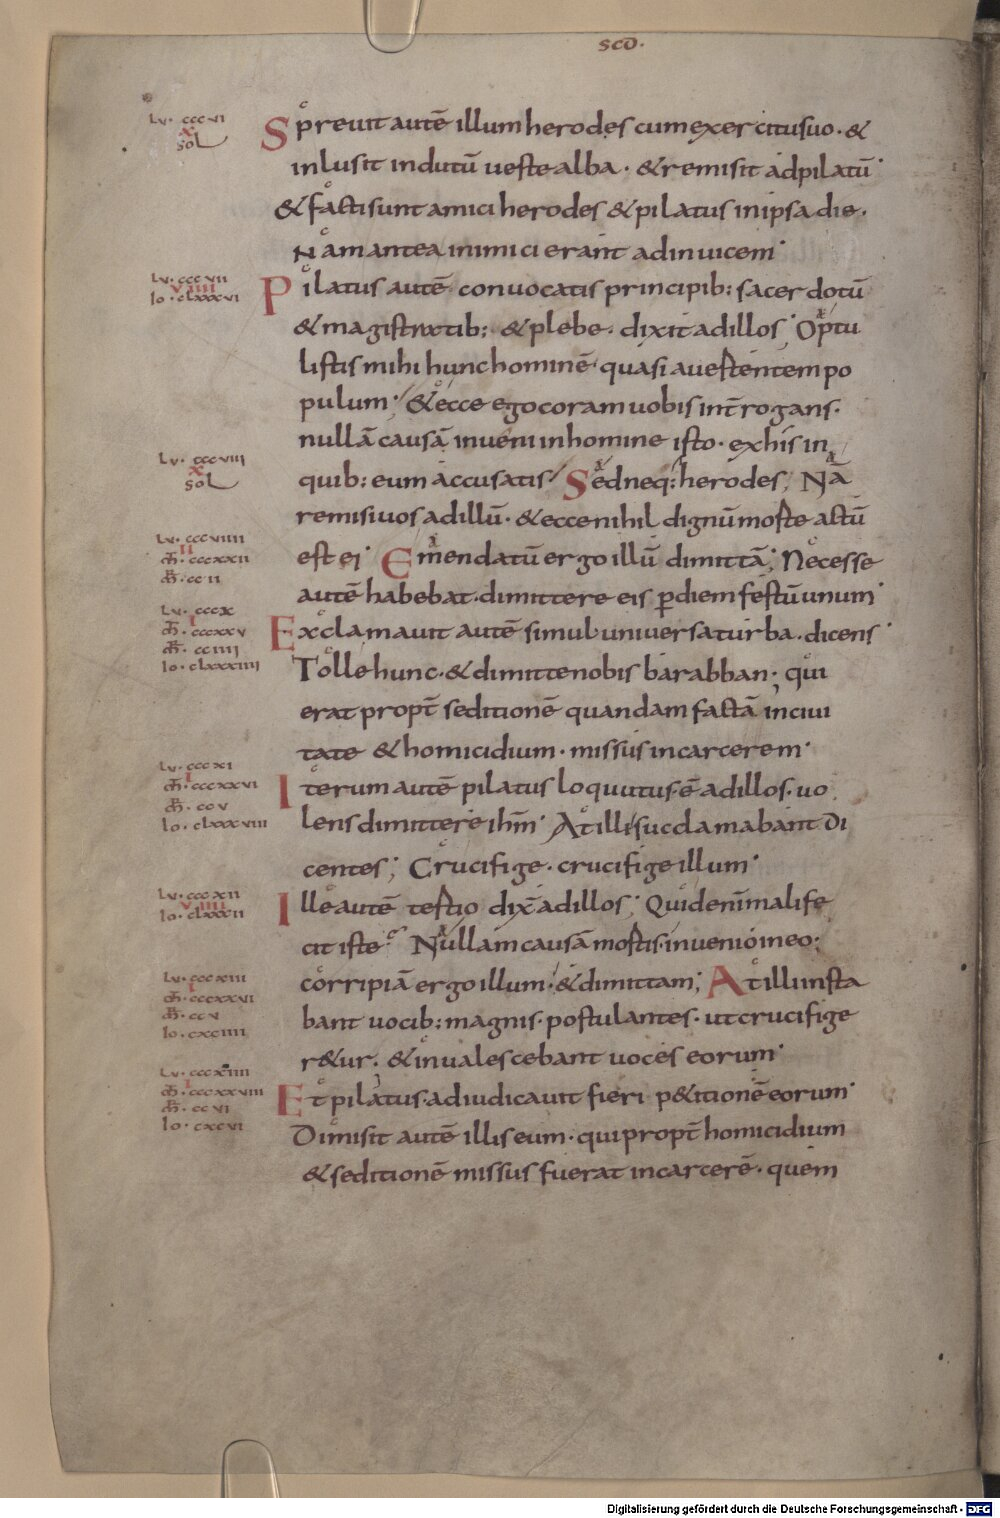 scd̄.
Lu. cccvi
x
sol
Spreuit autē illum herodes cum exercitu suo. &
inlusit indutū ueste alba. & remisit ad pilatū.
& facti sunt amici herodes & pilatus in ipsa die.
Nam antea inimici erant ad inuicem.
Lu. cccvii
viiii
Io. clxxxvi
Pilatus autē conuocatis principib: sacerdotū
& magistratib: & plebe. dixit ad illos; Optu
listis mihi hunc hominē quasi auertentem po
pulum; & ecce ego coram uobis int̄rogans.
nullā causā inueni in homine isto. ex his in
Lu. cccviii
x
sol
quib: eum accusatis; Sed neq: herodes; Nā
remisi uos ad illū. & ecce nihil dignū morte actū
Lu. cccviiii
ii
m̄. cccxxii
m̄. cc ii
est ei; Emendatū ergo illū dimittā; Necesse
autē habebat dimittere eis p̄ diem festū unum.
Lu. cccx
i
m̄. cccxxv
m̄. cciiii
Io. clxxxiiii
Exclamauit autē simul uniuersa turba. dicens.
Tolle hunc. & dimitte nobis barabban; qui
erat propt̄ seditionē quandam factā in ciui
tate & homicidium. missus in carcerem.
Lu. cccxi
i
m̄. cccxxvi
m̄. ccv
Io. clxxxviii
Iterum autē pilatus loquutus ē ad illos. uo
lens dimittere ihm̄; At illi succlamabant di
centes; Crucifige. crucifige illum.
Lu. cccxii
viiii
Io. clxxxii
Ille autē tertio dix̄ ad illos; Quid enī mali fe
cit iste? Nullam causā mortis inuenio in eo;
Lu. cccxiii
i
m̄. cccxxvi
m̄. ccv
Io. cxciiii
corripiā ergo illum. & dimittam; At illi insta
bant uocib: magnis postulantes. ut crucifige
r&ur. & inualescebant uoces eorum.
Lu. cccxiiii
i
m̄. cccxxviii
m̄. ccvi
Io. cxcvi
Et pilatus adiudicauit fieri p&itionē eorum.
Dimisit autē illis eum. qui propt̄ homicidium
& seditionē missus fuerat in carcerē. quem
Digitalisierung gefördert durch die Deutsche Forschungsgemeinschaft - DFG